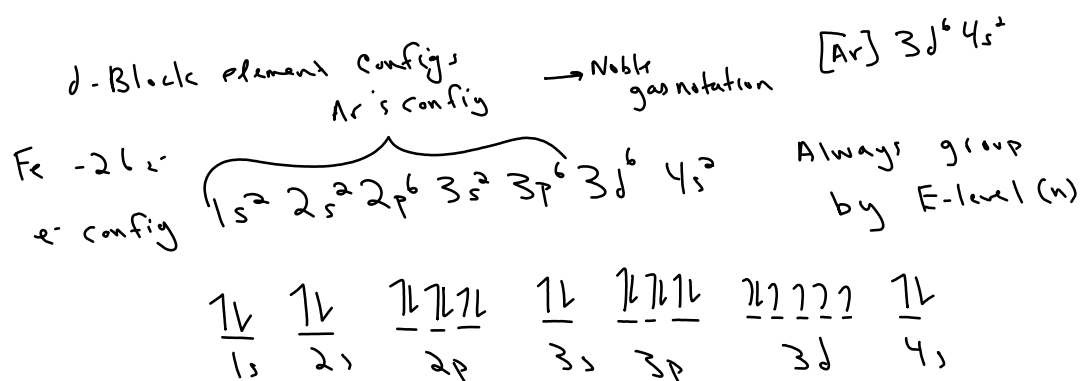 d-Block element Configs → Noble gas notation [Ar] 3d⁶ 4s²
Ar's config
Fe -26 e⁻
e⁻ config 1s² 2s² 2p⁶ 3s² 3p⁶ 3d⁶ 4s²
Always group
by E-level (n)
1s 2s 2p 3s 3p 3d 4s